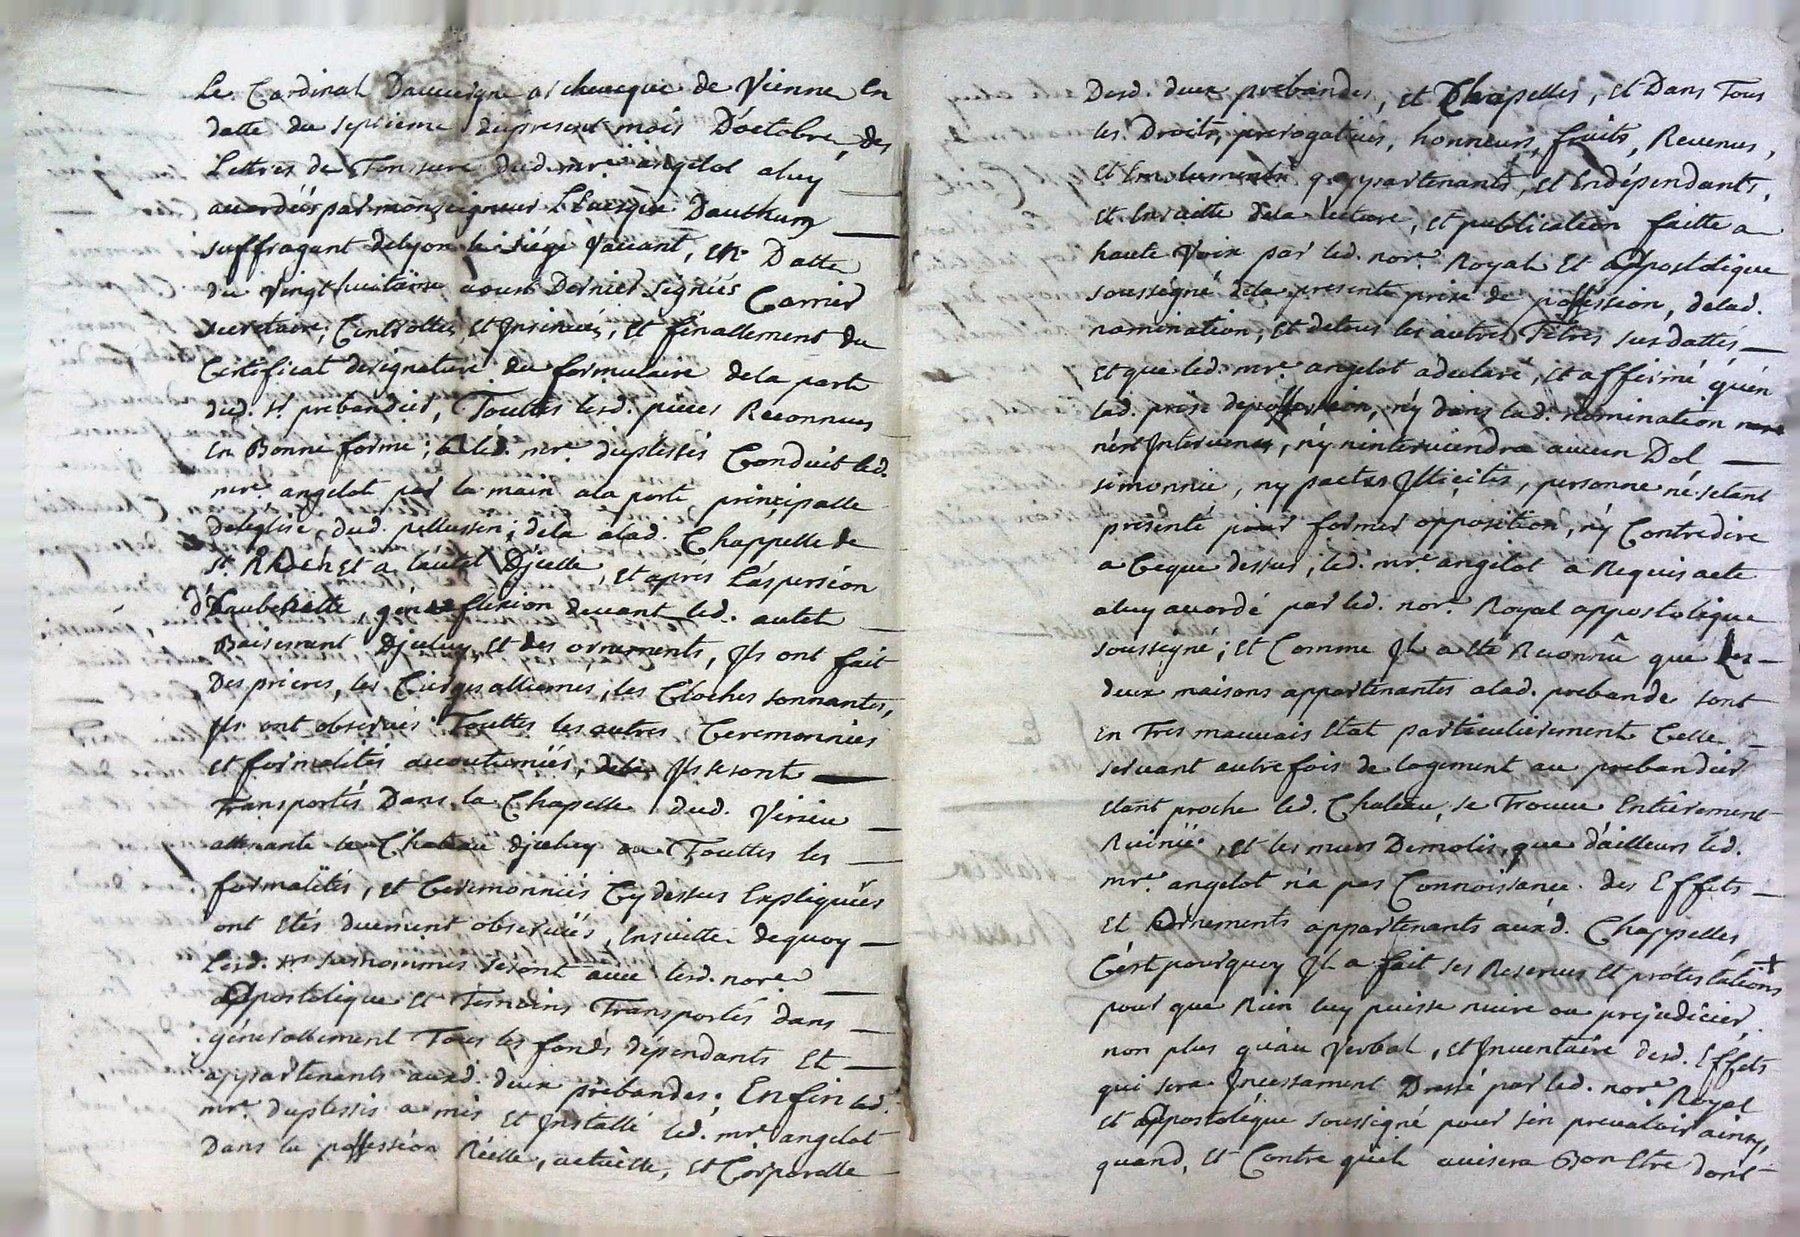 Le Cardinal Dauvergne archeveque de Vienne En
datte du septieme du present mois D'octobre, des
Lettres de Tonsure dud. mre. angelot a luy
accordéés par monseigneur L'Evesque Dauthun
suffragant de lyon le siége Vaccant, En Datte
du Vingt huitième aoust Dernier signéés Carrier
secretaire, Controllés, et Insinués, et finallement du
Certificat de signature du formulaire de la part
dud. sr. prebandier, Touttes lesd. pieces Reconnues
En Bonne forme; a led. mr. duplessis Conduit led.
mre. angelot par la main a la porte principalle
de l'eglise dud. pellussin; de la a lad. Chappelle de
st. Roch et a l'autel D'jcelle, et aprés L'aspersion
d'Eaubenitte, génuflexion devant led. autel
Baisement D'jceluy, et des ornements, Jls ont fait
Des prieres, les Cierges allumés, les Cloches sonnantes,
Jls ont observés Touttes les autres Ceremonnies
et formalités accoutuméés, Jls se sont
Transportés Dans la Chapelle dud. Virieu
attenante le Chateau d'jceluy ou Touttes les
formalités, et Ceremonniés Cy dessus Expliquéés
ont etés duement observéés, Ensuitte dequoy
Lesd. srs. susnommés se sont avec led. nore.
appostolique et Temoins Transportés dans
génerallement Tous les fonds dépendants Et
appartenants auxd. deux prebandes; Enfin led.
mr. duplessis a mis et Installé led. mr. angelot
Dans la possession Réelle, actuelle, et Corporelle
Desd. deux prebandes, et Chapelles, et Dans Tous
les Droits, prerogatives, honneurs, fruits, Revenus,
et Emoluments y appartenants, et Endépendants,
et Ensuitte de la lecture, et publication faitte a
haute Voix par led. nore. Royal et appostolique
soussigné de la presente prise de possession, de lad.
nomination, et de tous les autres Titres sus dattés,
et que led. mre. angelot a declaré, et affirmé qu'en
lad. prise de possession, n'y dans lad. nomination
n'est Intervenus, n'y n'interviendra aucun Dol
simonnie, ny pactes Jllicites, personne ne s'etant
presenté pour former opposition, n'y Contredire
a Ceque dessus, led. mre. angelot a Requis acte
a luy accordé par led. nore. Royal appostolique
soussigné; et Comme Jl a eté Reconnû que Les
deux maisons appartenantes a lad. prebande sont
En Tres mauvais Etat particulierement Celle
servant autrefois de logement au prebandier
etant proche led. Chateau, se Trouve Entiérement
Ruinéé, et les murs Demolis, que d'ailleurs led.
mre. angelot n'a pas Connoissance des Effets
et Ornements appartenants auxd. Chappelles,
C'est pourquoy Jl a fait ses Reserves et protestations
pour que Rien luy puisse nuire ou prejudicier,
non plus qu'au Verbal, et Inventaire desd. Effets
qui sera Incessament Dressé par led. nore. Royal
et appostolique soussigné pour s'en prevaloir ainsy,
quand, et Contre qu'il avisera Bon Etre dont